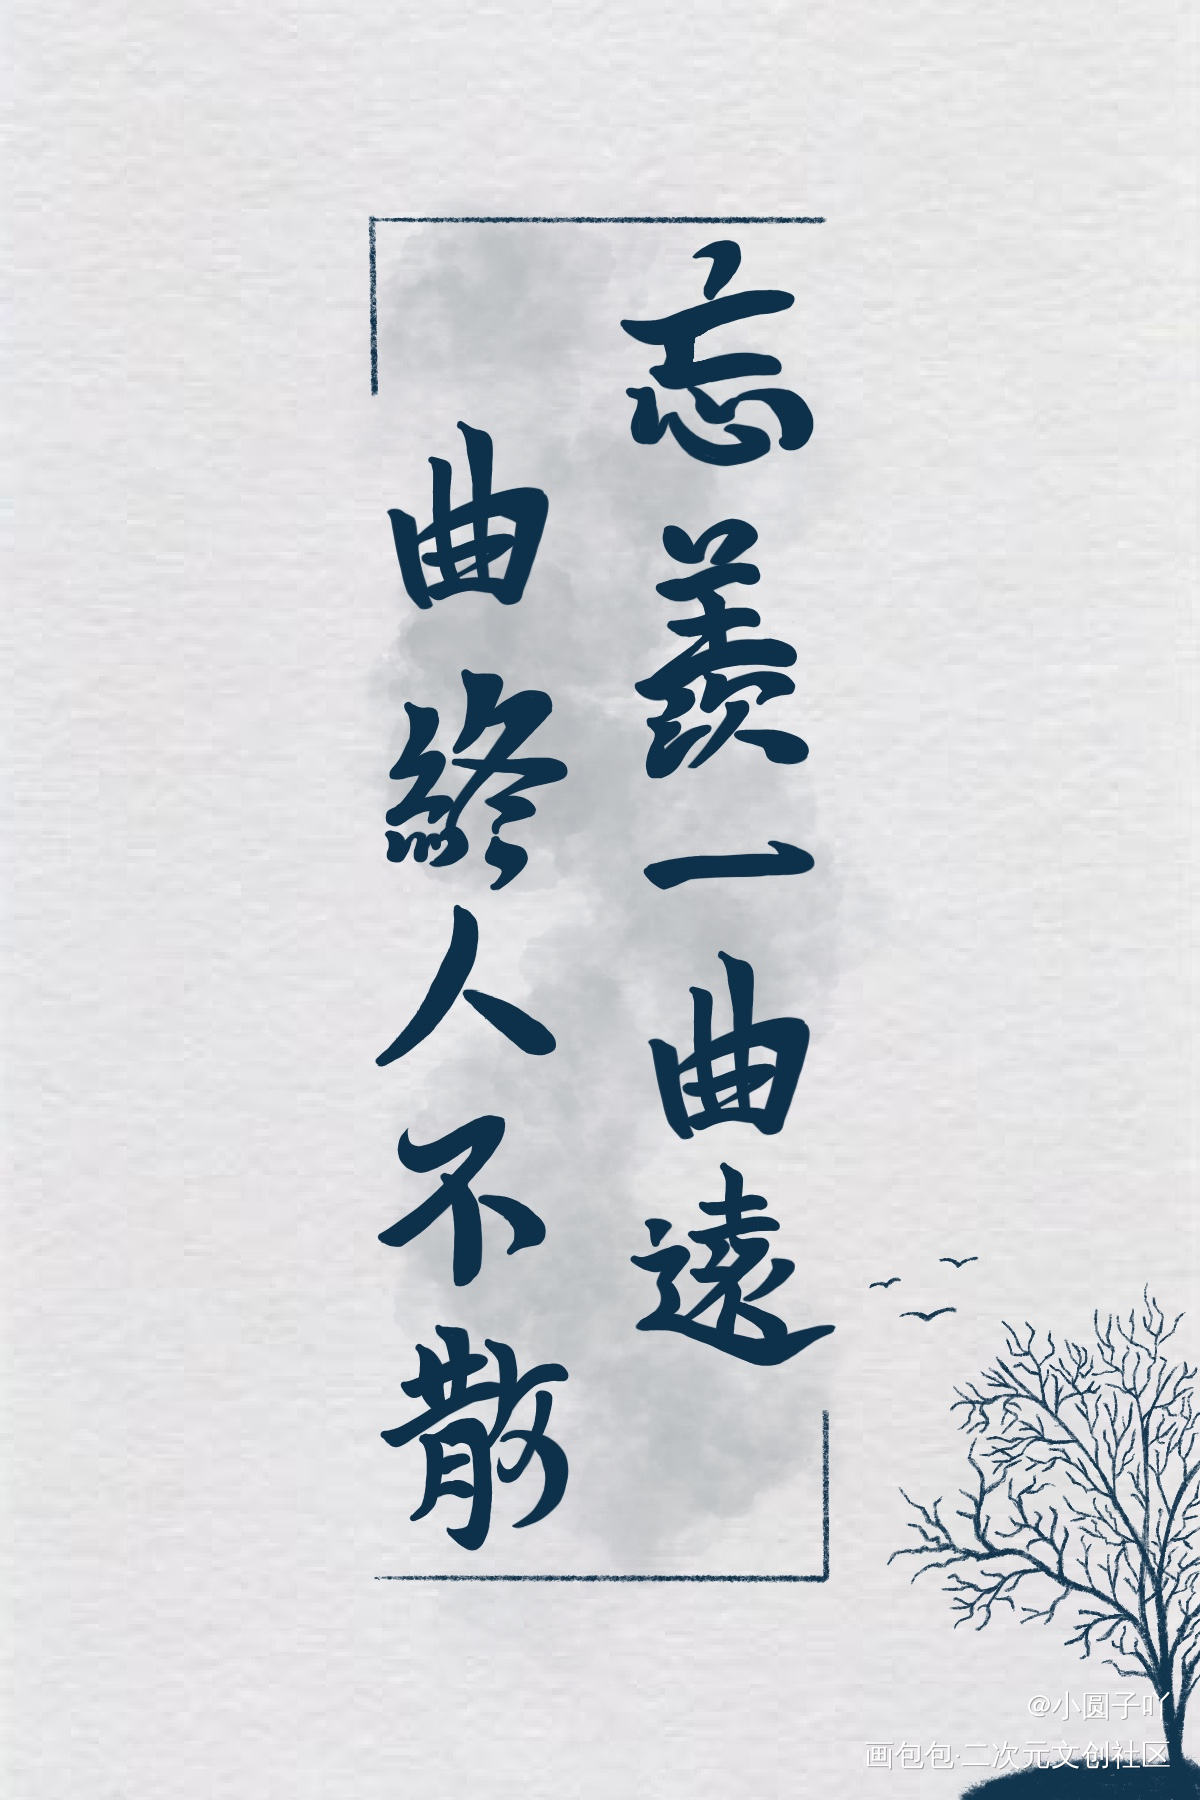 忘羨一曲遠
曲終人不散
@小圆子吖
画包包·二次元文创社区